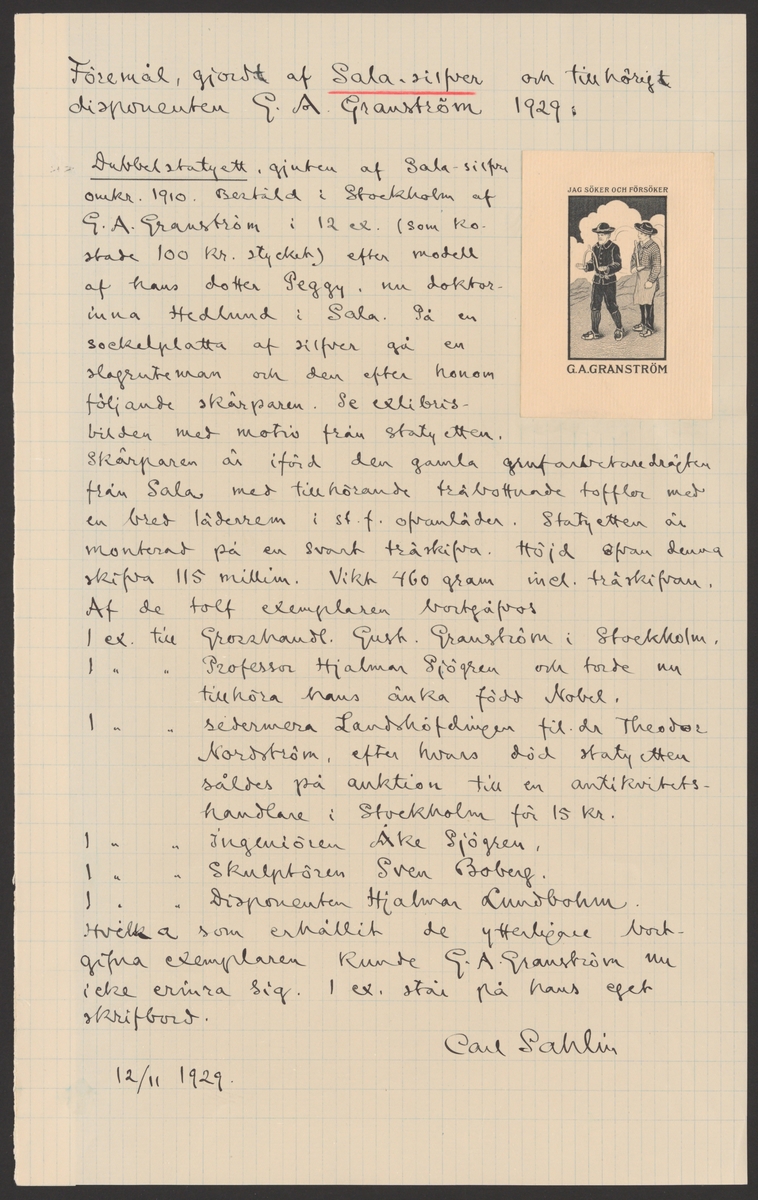 Föremål, gjordt af Sala-silfver och tillhörigt
disponenten G. A. Granström 1929:
Dubbelstatyett, gjuten af Sala-silfver
omkr. 1910. Bestäld i Stockholm af
G. A. Granström i 12 ex. (som ko-
stade 100 kr. stycket) efter modell
af hans dotter Peggy, nu doktor-
inna Hedlund i Sala. På en
sockelplatta af silfver gå en
slagruteman och den efter honom
följande skärparen. Se exlibris-
bilden med motiv från statyetten.
JAG SÖKER OCH FÖRSÖKER
G.A.GRANSTRÖM
Skärparen är iförd den gamla grufarbetaredrägten
från Sala med tillhörande träbottnade tofflor med
en bred läderrem i st. f. ofvanläder. Statyetten är
monterad på en svart träskifva. Höjd ofvan denna
skifva 115 millim. Vikt 460 gram incl. träskifvan.
Af de tolf exemplaren bortgåfvos
1 ex. till Grosshandl. Gust. Granström i Stockholm.
1 " " Professor Hjalmar Sjögren och torde nu
tillhöra hans änka född Nobel.
1 " " sedermera Landshöfdingen fil. dr Theodor
Nordström, efter hvars död statyetten
såldes på auktion till en antikvitets-
handlare i Stockholm för 15 kr.
1 " " Ingeniören Åke Sjögren.
1 " " Skulptören Sven Boberg.
1 " " Disponenten Hjalmar Lundbohm.
Hvilka som erhållit de ytterligare bort-
gifna exemplaren kunde G. A. Granström nu
icke erinra sig. 1 ex. står på hans eget
skrifbord.
Carl Sahlin
12/11 1929.